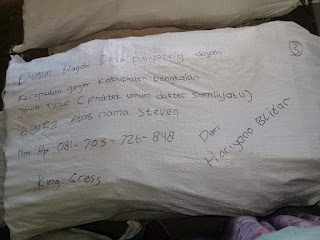 Dusun tlagah Desa banyoneng dajah
Kecamatan geger kabupaten bangkalan
Jawa Timur ( Praktek umum dokter Samliyatu)
Atas nama Steven
Nmr Hp 081-703-726-848
King Gress
Dari
Hariyono BLitar
3